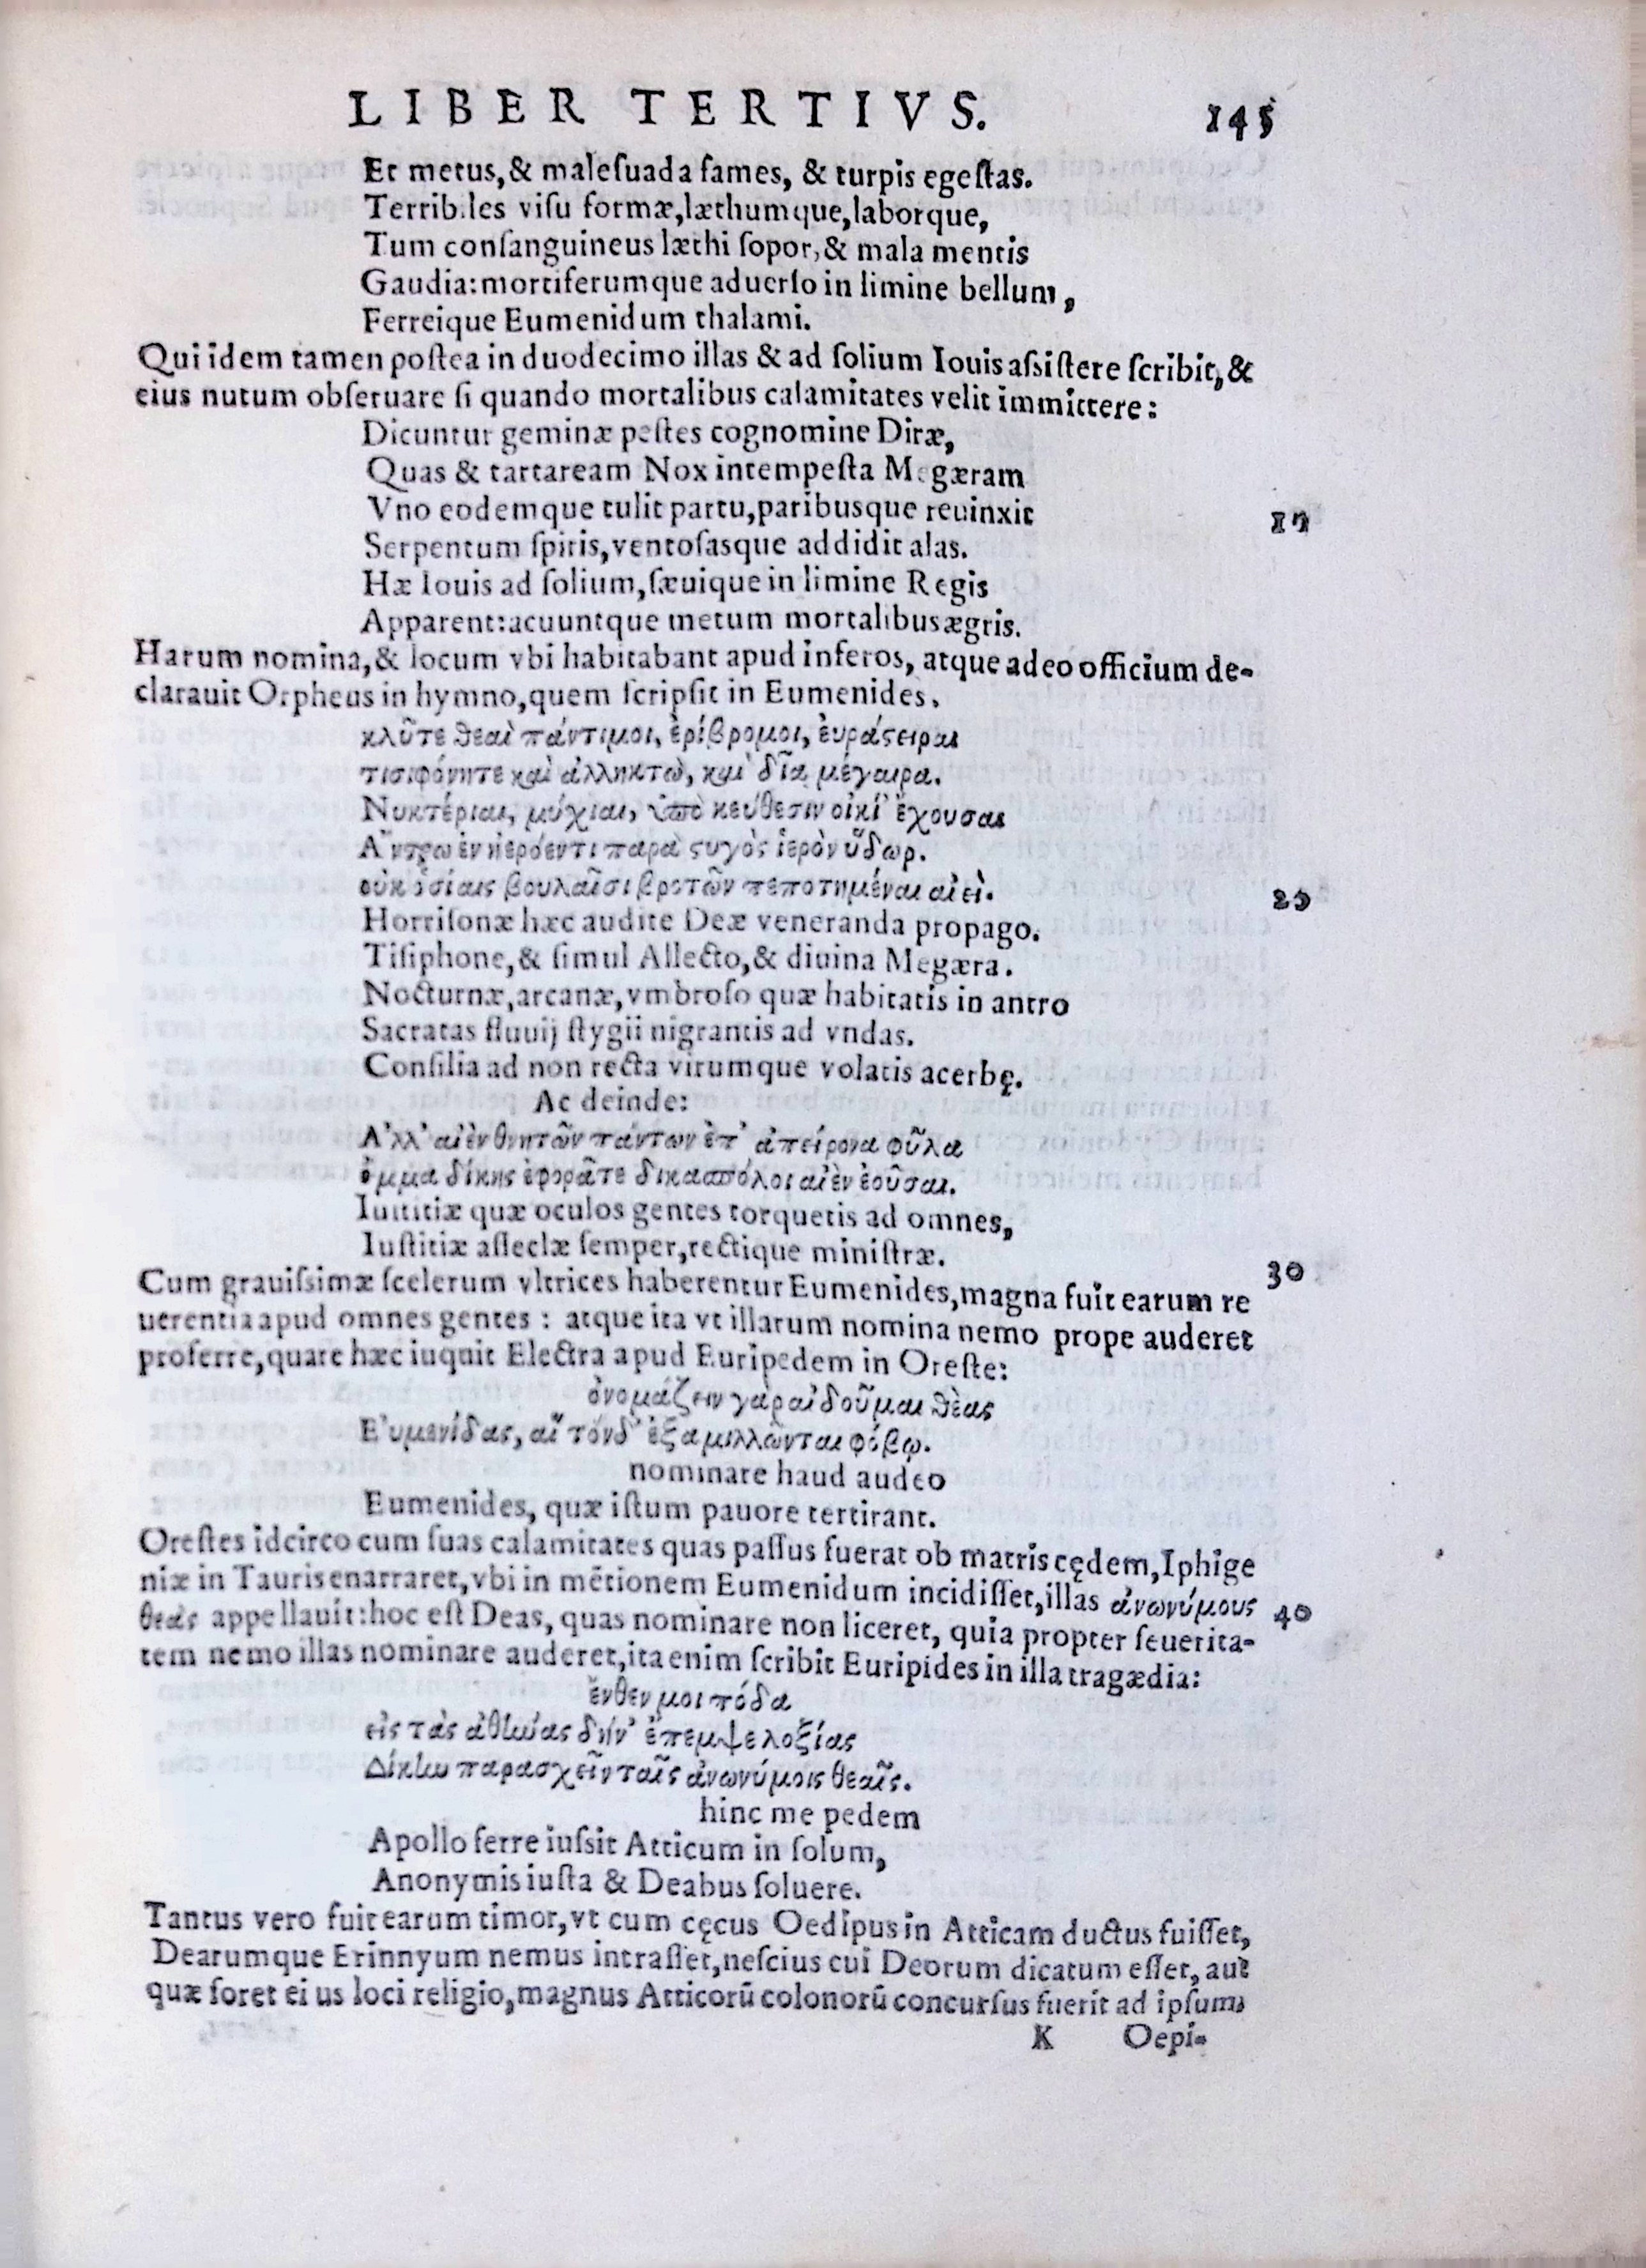 LIBER TERTIVS. 145
Et metus, & maleſuada fames, & turpis egeſtas.
Terribiles viſu formæ, læthumque, laborque,
Tum conſanguineus læthi ſopor, & mala mentis
Gaudia: mortiferumque aduerſo in limine bellum,
Ferreique Eumenidum thalami.
Qui idem tamen poſtea in duodecimo illas & ad ſolium Iouis aſsiſtere ſcribit, &
eius nutum obſeruare ſi quando mortalibus calamitates velit immittere:
Dicuntur geminæ peſtes cognomine Diræ,
Quas & tartaream Nox intempeſta Megæram
Vno eodemque tulit partu, paribusque reuinxit
10
Serpentum ſpiris, ventoſasque addidit alas.
Hæ Iouis ad ſolium, ſæuique in limine Regis
Apparent: acuuntque metum mortalibus ægris.
Harum nomina, & locum vbi habitabant apud inferos, atque adeo officium de-
clarauit Orpheus in hymno, quem ſcripſit in Eumenides.
κλῦτε θεαὶ πάντιμοι, ἐρίβρομοι, ἐυράστειραι
τισιφόνητε καὶ ἀλληκτὼ, καὶ δῖα μέγαιρα.
Νυκτέριαι, μύχιαι, ὑπὸ κεύθεσιν οἰκί' ἔχουσαι
Ἄντρω ἐν ἠερόεντι παρὰ στυγὸς ἱερὸν ὕδωρ.
οὐκ ὁσίαις βουλαῖσι βροτῶν πεποτημέναι αἰεὶ.
20
Horriſonæ hæc audite Deæ veneranda propago.
Tiſiphone, & ſimul Allecto, & diuina Megæra.
Nocturnæ, arcanæ, vmbroſo quæ habitatis in antro
Sacratas fluuij ſtygii nigrantis ad vndas.
Conſilia ad non recta virumque volatis acerbę.
Ac deinde:
Ἀλλ' αἰὲν θνητῶν πάντων ἐπ' ἀπείρονα φῦλα
ὄμμα δίκης ἐφορᾶτε δικασπόλοι αἰὲν ἐοῦσαι.
Iuſtitiæ quæ oculos gentes torquetis ad omnes,
Iuſtitiæ aſſeclæ ſemper, rectique miniſtræ.
30
Cum grauiſsimæ ſcelerum vltrices haberentur Eumenides, magna fuit earum re
uerentia apud omnes gentes : atque ita vt illarum nomina nemo prope auderet
proferre, quare hæc iuquit Electra apud Euripedem in Oreſte:
ὀνομάζειν γὰρ αἰδοῦμαι θὲας
Εὐμενίδας, αἳ τόνδ' ἐξαμιλλῶνται φόβῳ.
nominare haud audeo
Eumenides, quæ iſtum pauore tertirant.
Oreſtes idcirco cum ſuas calamitates quas paſſus fuerat ob matris cędem, Iphige
niæ in Tauris enarraret, vbi in mētionem Eumenidum incidiſſet, illas ἀνωνύμους
40
θεὰς appellauit: hoc eſt Deas, quas nominare non liceret, quia propter ſeuerita-
tem nemo illas nominare auderet, ita enim ſcribit Euripides in illa tragædia:
ἔνθεν μοι πόδα
εἰς τὰς ἀθήνας δήν' ἔπεμψε λοξίας
Δίκην παρασχεῖν ταῖς ἀνωνύμοις θεαῖς.
hinc me pedem
Apollo ferre iuſsit Atticum in ſolum,
Anonymis iuſta & Deabus ſoluere.
Tantus vero fuit earum timor, vt cum cęcus Oedipus in Atticam ductus fuiſſet,
Dearumque Erinnyum nemus intraſſet, neſcius cui Deorum dicatum eſſet, aut
quæ foret eius loci religio, magnus Atticorū colonorū concurſus fuerit ad ipſum
K Oepi-